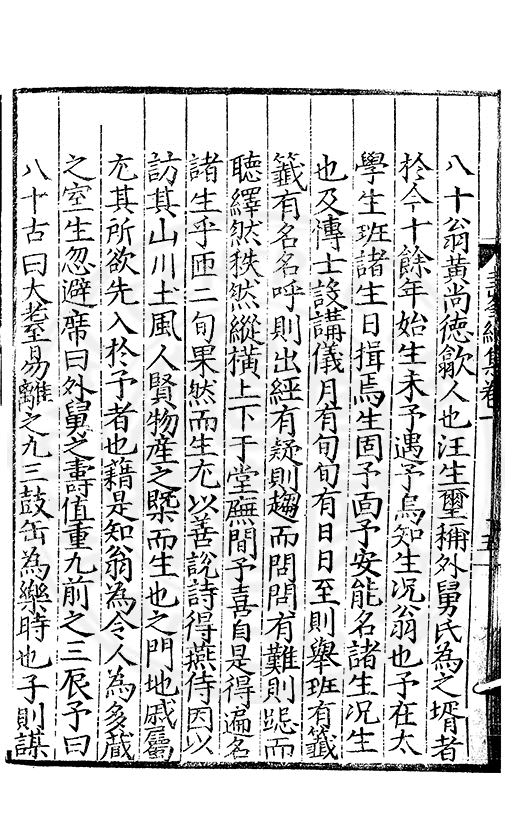 八十翁黃尚德歙人也汪生璽稱外舅氏為之壻者
於今十餘年始生未予遇予烏知生况翁也予在太
學生班諸生日揖焉生固予面予安能名諸生况生
也及博士設講儀月有旬旬有日日至則舉班有籤
籤有名名呼則出經有疑則趨而問問有難則跽而
聽繹然秩然縱横上下于堂廡間予喜自是得遍名
諸生乎匝二旬果然而生尤以善說詩得燕侍因以
訪其山川土風人賢物產之槩而生也之門地戚屬
尤其所欲先入於予者也藉是知翁為令人為多蔵
之室生忽避席曰外舅之壽值重九前之三辰予曰
八十古曰大耋易離之九三鼓缶為樂時也子則謀
續集卷一